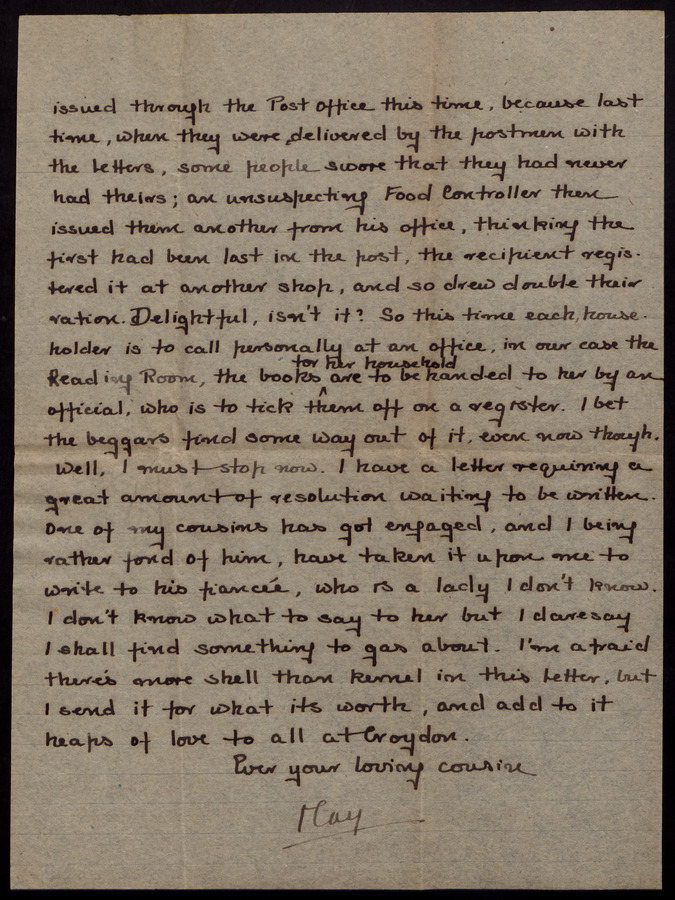 issued through the Post office this time, because last
time, when they were delivered by the postmen with
the letters, some people swore that they had never
had theirs; an unsuspecting Food Controller then
issued them another from his office, thinking the
first had been last in the post, the recipient regis-
tered it at another shop, and so drew double their
ration. Delightful, isn't it? So this time each house-
holder is to call personally at an office, in our case the
for her household
Reading Room, the books are to be handed to her by an
official, who is to tick them off on a register. I bet
the beggars find some way out of it, even now though.
Well, I must stop now. I have a letter requiring a
great amount of resolution waiting to be written.
One of my cousins has got engaged, and I being
rather fond of him, have taken it upon me to
write to his fiancée, who is a lady I don't know.
I don't know what to say to her but I daresay
I shall find something to gas about. I'm afraid
there's more shell than kernel in this letter, but
I send it for what its worth, and add to it
heaps of love to all at Croydon.
Ever your loving cousin
May